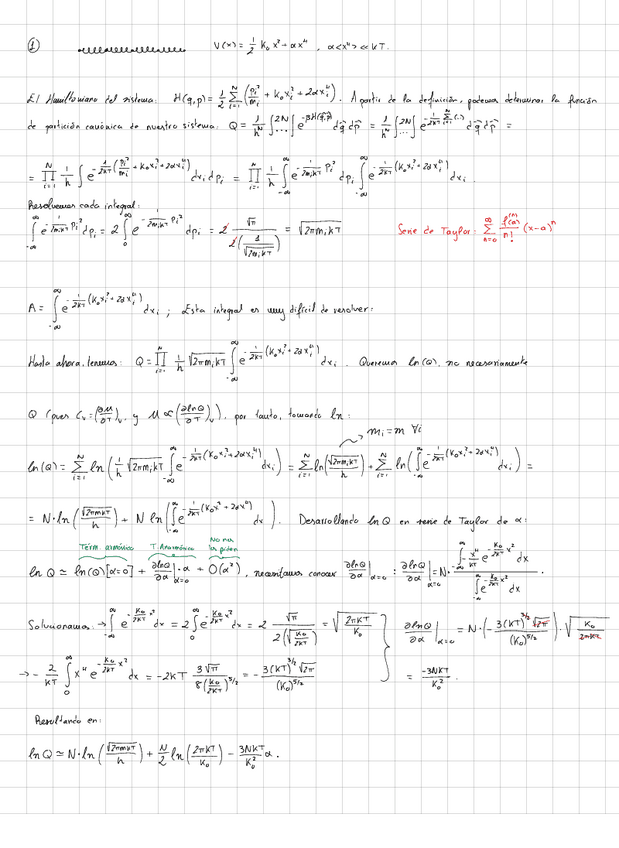 ① V(x) = 1/2 K₀x² + αx⁴ , α<x⁴> ≪ KT.
El Hamiltoniano del sistema: H(q,p) = 1/2 Σ_{i=1}^{N} (p_i²/m_i + K₀x_i² + 2αx_i⁴). A partir de la definición, podemos determinar la función
de partición canónica de nuestro sistema: Q = 1/h^N ∫…(2N)…∫ e^{-βH(q,p)} dq⃗ dp⃗ = 1/h^N ∫…(2N)…∫ e^{-1/2KT Σ_{i=1}^{N}(…)} dq⃗ dp⃗ =
= ∏_{i=1}^{N} 1/h ∫ e^{-1/2KT (p_i²/m_i + K₀x_i² + 2αx_i⁴)} dx_i dp_i = ∏_{i=1}^{N} 1/h ∫_{-∞}^{∞} e^{-1/(2m_iKT) p_i²} dp_i ∫_{-∞}^{∞} e^{-1/2KT (K₀x_i² + 2αx_i⁴)} dx_i .
Resolvemos cada integral:
∫_{-∞}^{∞} e^{-1/(2m_iKT) p_i²} dp_i = 2 ∫_0^{∞} e^{-1/(2m_iKT) p_i²} dp_i = 2 √π/(2(1/√(2m_iKT))) = √(2πm_iKT) Serie de Taylor: Σ_{n=0}^{∞} f^{(n)}(a)/n! (x-a)^n
A = ∫_{-∞}^{∞} e^{-1/2KT (K₀x_i² + 2αx_i⁴)} dx_i ; Esta integral es muy difícil de resolver:
Hasta ahora, tenemos: Q = ∏_{i=1}^{N} 1/h √(2πm_iKT) ∫_{-∞}^{∞} e^{-1/2KT (K₀x_i² + 2αx_i⁴)} dx_i . Queremos ln(Q), no necesariamente
Q (pues C_v = (∂U/∂T)_v, y U ∝ (∂lnQ/∂T)_v), por tanto, tomando ln:
m_i = m ∀i
ln(Q) = Σ_{i=1}^{N} ln(1/h √(2πm_iKT) ∫_{-∞}^{∞} e^{-1/2KT (K₀x_i² + 2αx_i⁴)} dx_i) = Σ_{i=1}^{N} ln(√(2πm_iKT)/h) + Σ_{i=1}^{N} ln(∫_{-∞}^{∞} e^{-1/2KT (K₀x_i² + 2αx_i⁴)} dx_i) =
= N·ln(√(2πmKT)/h) + N ln(∫_{-∞}^{∞} e^{-1/2KT (K₀x² + 2αx⁴)} dx). Desarrollando lnQ en serie de Taylor de α:
Térm. armónico T. Anarmónico No nos los piden
ln Q ≃ ln(Q)[α=0] + ∂lnQ/∂α|_{α=0}·α + O(α²), necesitamos conocer ∂lnQ/∂α|_{α=0} : ∂lnQ/∂α|_{α=0} = N· (∫_{-∞}^{∞} -x⁴/KT e^{-K₀/2KT x²} dx)/(∫_{-∞}^{∞} e^{-K₀/2KT x²} dx) .
Solucionamos: → ∫_{-∞}^{∞} e^{-K₀/2KT x²} dx = 2 ∫_0^{∞} e^{-K₀/2KT x²} dx = 2 √π/(2(√(K₀/2KT))) = √(2πKT/K₀) ∂lnQ/∂α|_{α=0} = N·(-3(KT)^{3/2}√(2π)/(K₀)^{5/2})·√(K₀/2πKT)
→ -2/KT ∫_0^{∞} x⁴ e^{-K₀/2KT x²} dx = -2KT 3√π/(8(K₀/2KT)^{5/2}) = -3(KT)^{3/2}√(2π)/(K₀)^{5/2} = -3NKT/K₀² .
Resultando en:
ln Q ≃ N·ln(√(2πmKT)/h) + N/2 ln(2πKT/K₀) - 3NKT/K₀² α .